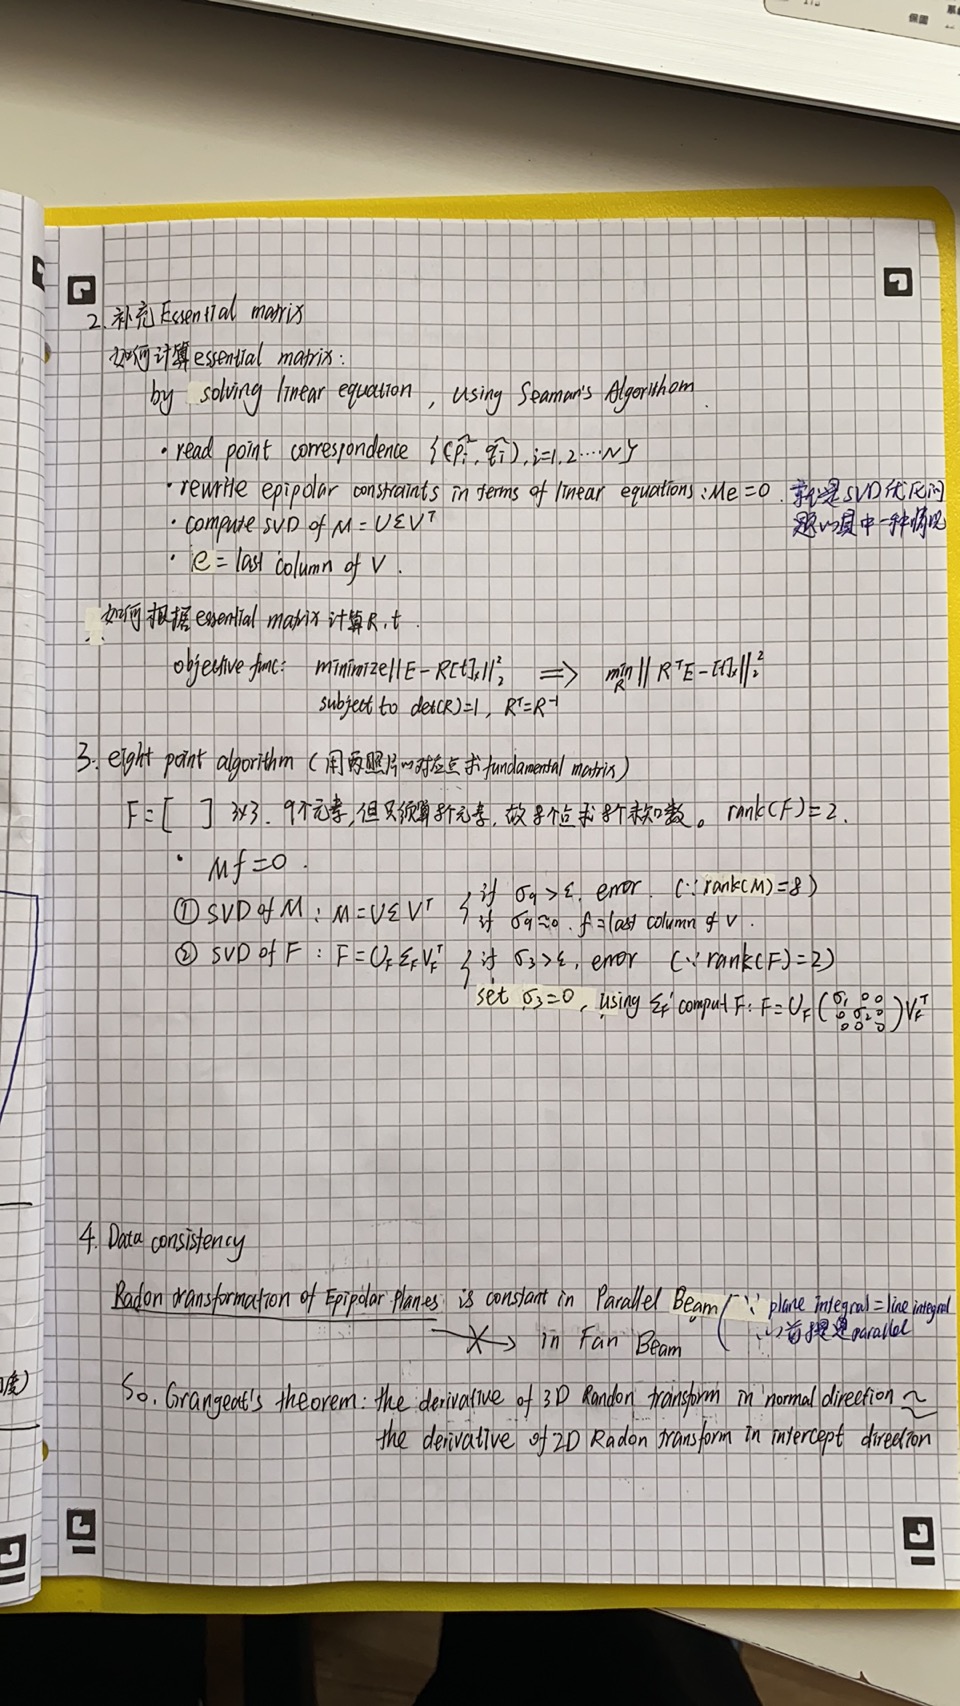 保固
2. 补充 Essential matrix
如何计算 essential matrix:
by solving linear equation , using Seaman's Algorithom
· read point correspondence {(p̂i, q̂i), i=1,2……N}
· rewrite epipolar constraints in terms of linear equations: Me=0. 就是SVD优化问
题的其中一种情况
· compute SVD of M = UΣVᵀ
· e = last column of V.
如何根据essential matrix 计算R,t.
objective func: minimize||E-R[t]ₓ||²₂ ⟹ min_R || RᵀE-[t]ₓ||²₂
subject to det(R)=1, Rᵀ=R⁻¹
3. eight point algorithm (用两照片的对应点求fundamental matrix)
F=[ ] 3x3. 9个元素,但只须算8个元素, 故8个点求8个未知数。 rank(F)=2.
· Mf=0.
① SVD of M : M=UΣVᵀ { if σ₉>ε, error. (∵ rank(M)=8)
if σ₉≈0. f=last column of V.
② SVD of F : F=U_FΣ_FV_Fᵀ { if σ₃>ε, error (∵ rank(F)=2)
set σ₃=0, using Σ_F' comput F: F=U_F (σ₁ 0 0
0 σ₂ 0
0 0 0) V_Fᵀ
4. Data consistency
Radon transformation of Epipolar Planes is constant in Parallel Beam (∵ plane integral = line integral
的前提是parallel
in Fan Beam
度)
So, Grangeat's theorem: the derivative of 3D Randon transform in normal direction ~
the derivative of 2D Radon transform in intercept direction